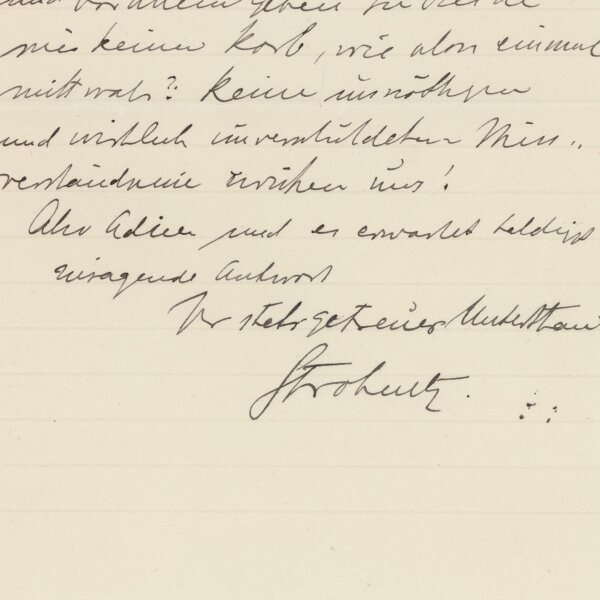 und vor allem geben Sie
mir keinen Korb, wie alou einmal
mittwals?: Keine unnöthigen
und wirklich unverschuldeten Miss-
verständnisse zwischen uns!
Also Adieu und es erwartet baldigst
zusagende Antwort
Ihr stets getreuer Unterthan